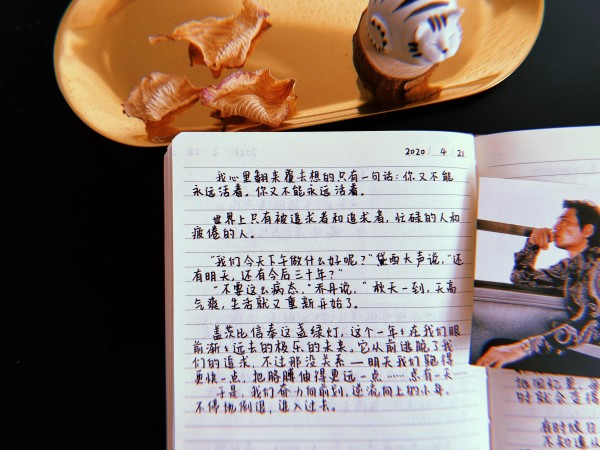 2020 / 4 / 21
我心里翻来覆去想的只有一句话：你又不能
永远活着，你又不能永远活着。
世界上只有被追求者和追求者，忙碌的人和
疲倦的人。
“我们今天下午做什么好呢？”黛西大声说，“还
有明天，还有今后三十年？”
“不要这么病态，”乔丹说，“秋天一到，天高
气爽，生活就又重新开始了。
盖茨比信奉这盏绿灯，这个一年年在我们眼
前渐渐远去的极乐的未来。它从前逃脱了我
们的追求，不过那没关系——明天我们跑得
更快一点，把胳膊伸得更远一点……总有一天
于是，我们奋力向前划，逆流向上的小舟，
不停地倒退，进入过去。
时就会变得
有时候日
不知道从